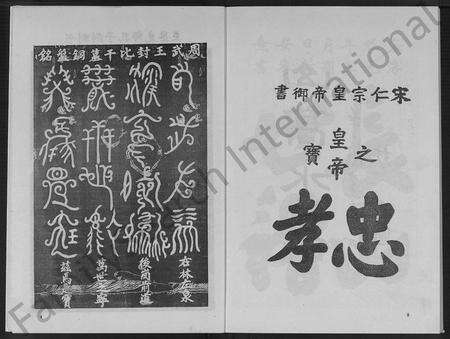 宋仁宗皇帝御書
皇帝
之
寶
忠孝
周武王封比干墓銅盤銘
右林左泉
後岡前道
萬世之寧
茲焉是寶
FamilySearch International